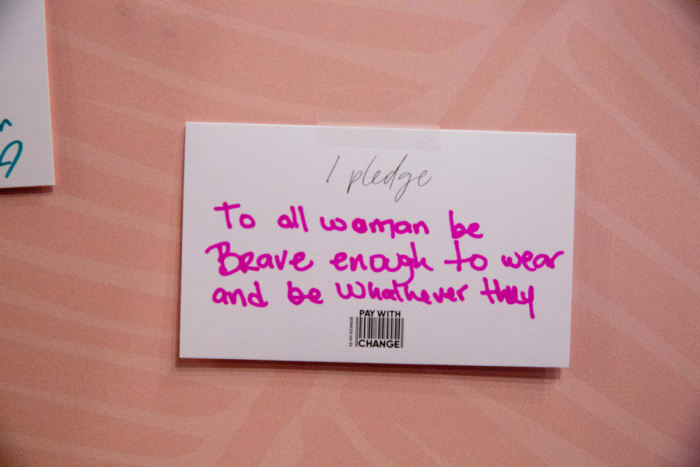 I pledge
To all woman be
Brave enough to wear
and be whathever they
PAY WITH
CHANGE